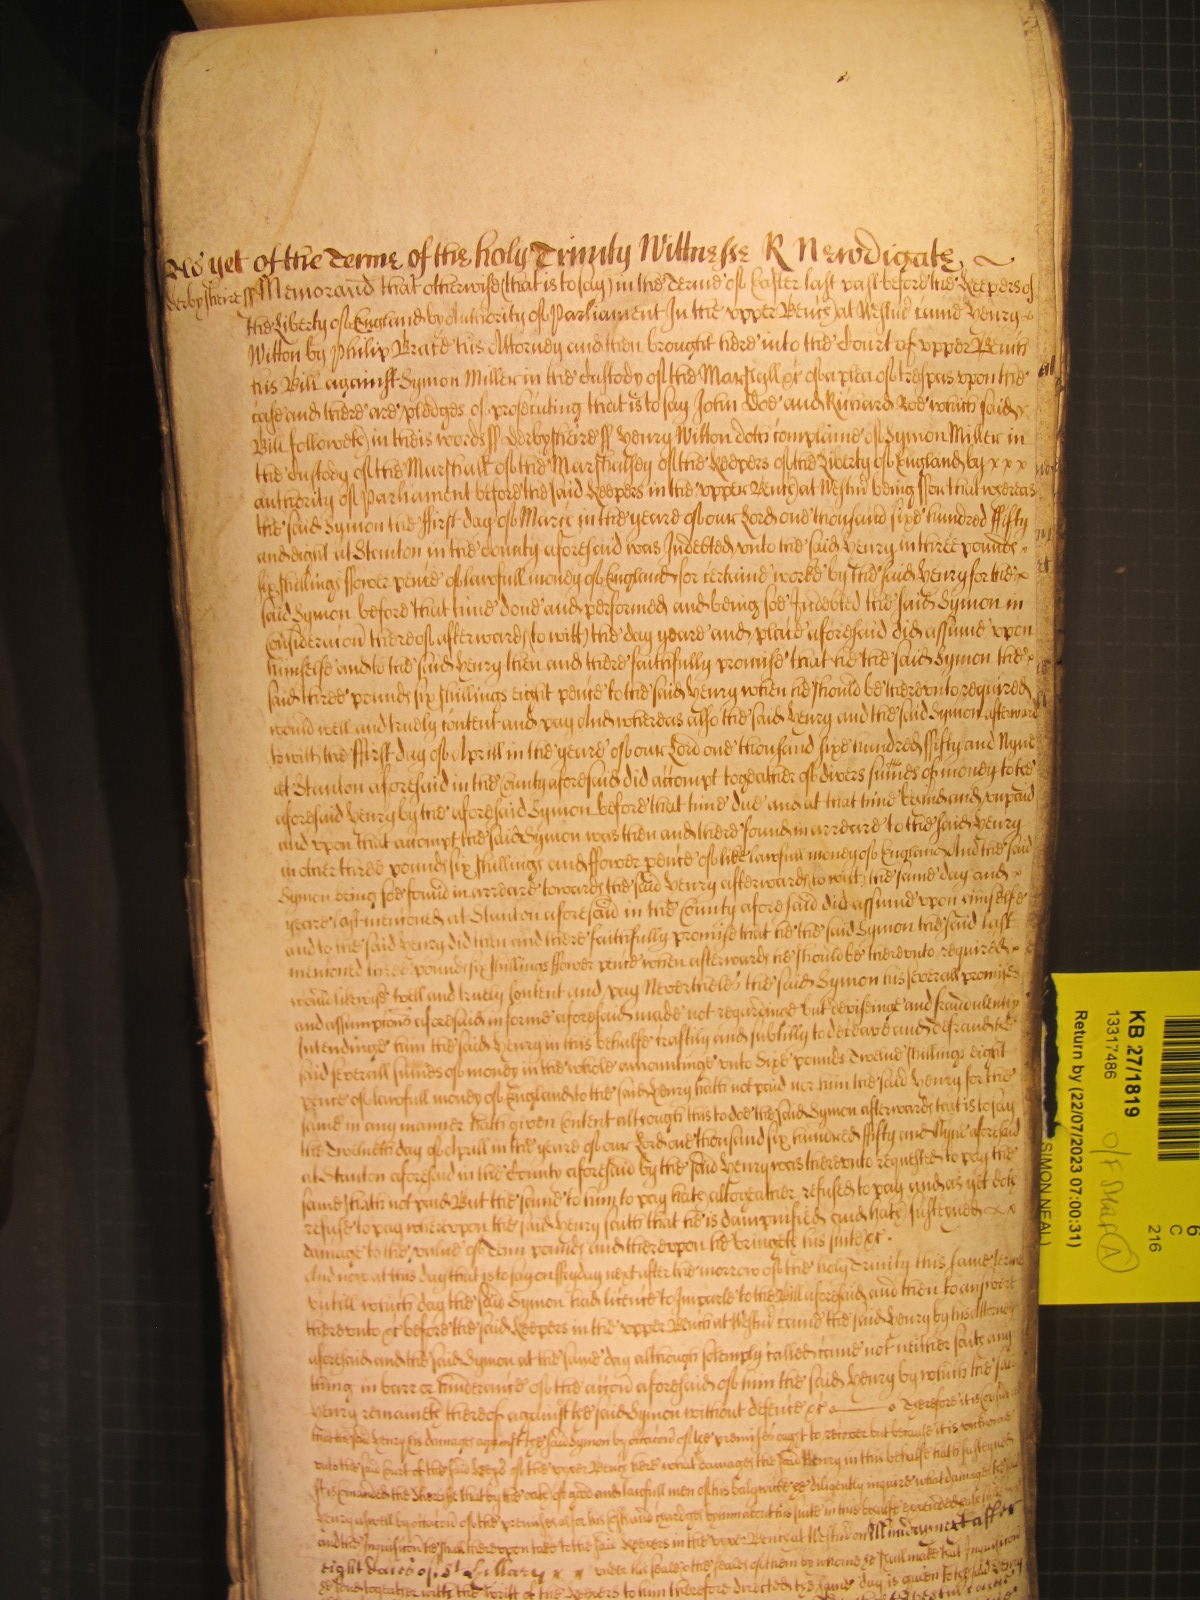 As yet of the Terme of the holy Trinity Wittnesse R Newdigate
Derbysheire ss Memorand that otherwise (that is to say) in the Terme of Easter last past before the Keepers of
the Liberty of England by Authority of Parliament In the upper Bench at Westmr came Henry
Witton by Philip Brace his Attorney and then brought here into the Court of upper Bench
his Bill against Symon Miller in the custody of the Marshall &c of a plea of trespas upon the
case and there are pledges of prosecuting that is to say John Doe and Richard Roe which said
Bill followeth in theis words ss Derbysheire ss Henry Witton doth complaine of Symon Miller in
the custody of the Marshall of the Marshalsey of the Keepers of the Liberty of England by x x x
authority of Parliament before the said Keepers in the upper Bench at Westmr being ffor that whereas
the said Symon the ffirst day of March in the yeare of our Lord one thousand sixe hundred ffifty
and eight at Stanton in the County aforesaid was Indebted unto the said Henry in three pounds
six shillings ffower pence of lawfull money of England for certaine worke by the said Henry for the
said Symon before that time done and performed and being soe Indebted the said Symon in
Consideracon thereof afterwards (to witt) the day yeare and place aforesaid did assume upon
himselfe and to the said Henry then and there faithfully promise that he the said Symon the
said three pounds six shillings eight pence to the said Henry when he should be thereunto required
would well and truely content and pay And whereas also the said Henry and the said Symon afterward
to witt the ffirst day of Aprill in the yeare of our Lord one thousand sixe hundred ffifty and Nyne
at Stanton aforesaid in the County aforesaid did accompt togeather of divers summes of money to the
aforesaid Henry by the aforesaid Symon before that time due and at that time beeinge unpaid
and upon that accompt the said Symon was then and there found in arreare to the said Henry
in other three pounds six shillings and ffower pence of like lawfull money of England And the said
Symon being soe found in arreare towards the said Henry afterwards (to witt) the same day and
yeare last menconed at Stanton aforesaid in the County aforesaid did assume upon himselfe
and to the said Henry did then and there faithfully promise that he the said Symon the said last
menconed three pounds six shillings ffower pence when afterwards he should be thereunto required
would likewise well and truely Content and pay Neverthelesse the said Symon his severall promises
and assumpcons aforesaid in forme aforesaid made not regardinge but deviseinge and fraudulently
Intendinge him the said Henry in this behalfe craftily and subtilly to deceave and defraud the
said severall summes of money in the whole amountinge unto Sixe pounds Twelve shillings eight
pence of lawfull money of England to the said Henry hath not paid nor him the said Henry for the
same in any manner hath given Content although this to doe the said Symon afterwards that is to say
the Twelveth day of Aprill in the yeare of our Lord one thousand six hundred ffifty and Nyne aforesaid
at Stanton aforesaid in the County aforesaid by the said Henry was thereunto requested to pay the
same hath not paid But the same to him to pay hath altogeather refused to pay and as yet doth
refuse to pay whereupon the said Henry saith that he is dampnified and hath susteyned x x
damage to the value of Tenn pounds and thereupon he bringeth his suite &c.
And now at this day that is to say on ffryday next after the morrow of the holy Trinity this same Terme
untill which day the said Symon had licence to Imparle to the Bill aforesaid and then to answere
thereunto &c before the said Keepers in the upper Bench at Westmr came the said Henry by his Attorney
aforesaid and the said Symon at the same day although solemply called came not neither saith any
thing in barr or hinderance of the accon aforesaid of him the said Henry by which the said
Henry remaineth thereof against the said Symon without defence &c Therefore it is
that the said Henry his damages against the said Symon by occacon of the premises ought to recover but because it is unknowne
unto the said Court of the said Keepers of the upper Bench here what damages the said Henry in this behalfe hath susteyned
It is comanded the Sheriffe that by the oath of good and lawfull men of his baliwicke he diligently inquire what damages the
Henry aswell by occacon of the premises as for his Costs and charges by him about his suite in this behalfe expended hath
and the Inquisicon he shall thereupon take to the said Keepers in the upper Bench at Westmr on Munday next after
eight daies of St Hillary x x under his seale & the seales of them by whome he shall make that Inquisicon
he send togeather with the writt of the Keepers to him therefore directed the same day is given to the said Henry
KB 27/1819
13317486
Return by (22/07/2023 07:00:31)
SIMON NEAL)
6
C
216